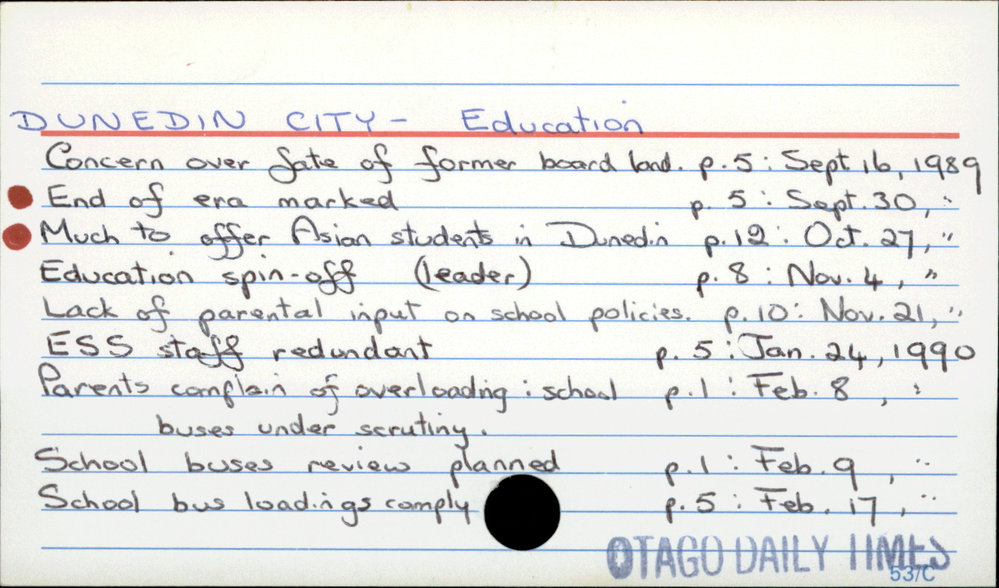 DUNEDIN CITY - Education
Concern over fate of former board land. p. 5 : Sept 16, 1989
End of era marked p. 5 : Sept. 30, "
Much to offer Asian students in Dunedin p. 12 : Oct. 27, "
Education spin-off (leader) p. 8 : Nov. 4, "
Lack of parental input on school policies. p. 10 : Nov. 21, "
ESS staff redundant p. 5 : Jan. 24, 1990
Parents complain of overloading : school p. 1 : Feb. 8, "
buses under scrutiny.
School buses review planned p. 1 : Feb. 9, "
School bus loadings comply p. 5 : Feb. 17, "
OTAGO DAILY TIMES
537C